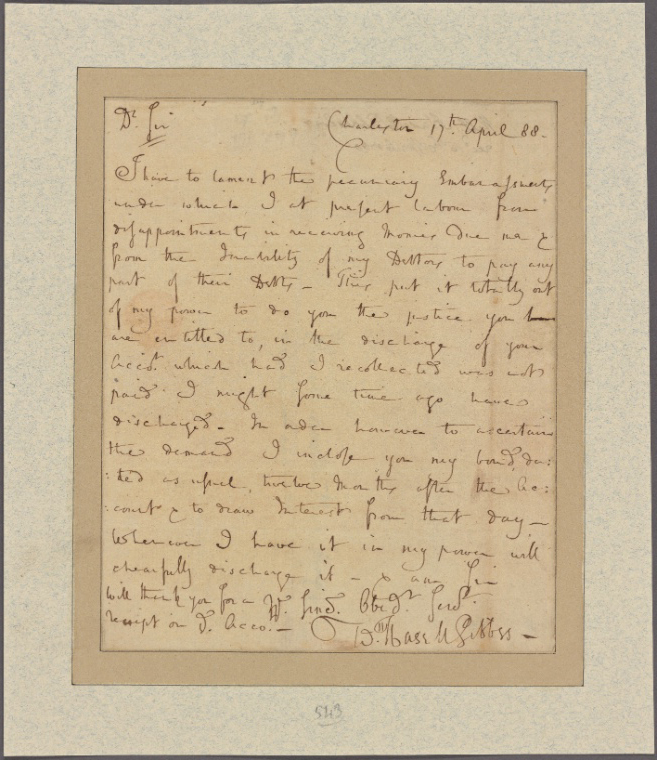 Dr. Sir
Charleston 17th April 88.
I have to lament the pecuniary Embarassments
under which I at present labour from
disappointments in receiving Monies due me &
from the Inability of my Debtors to pay any
part of their Debts – This put it totally out
of my power to do you the justice you
are entitled to, in the discharge of your
Acct. which had I recollected was not
paid I might some time ago have
discharged. In order however to ascertain
the demand I inclose you my bond da:
:ted as usual, twelve Months after the Ac:
:count & to draw Interest from that day –
Whenever I have it in my power will
chearfully discharge it – & am Sir
will thank you for a
receipt on Dr. Acco. –
Yr. Sincr. Obedt. Servt.
Wm. Hasell Gibbes –
543